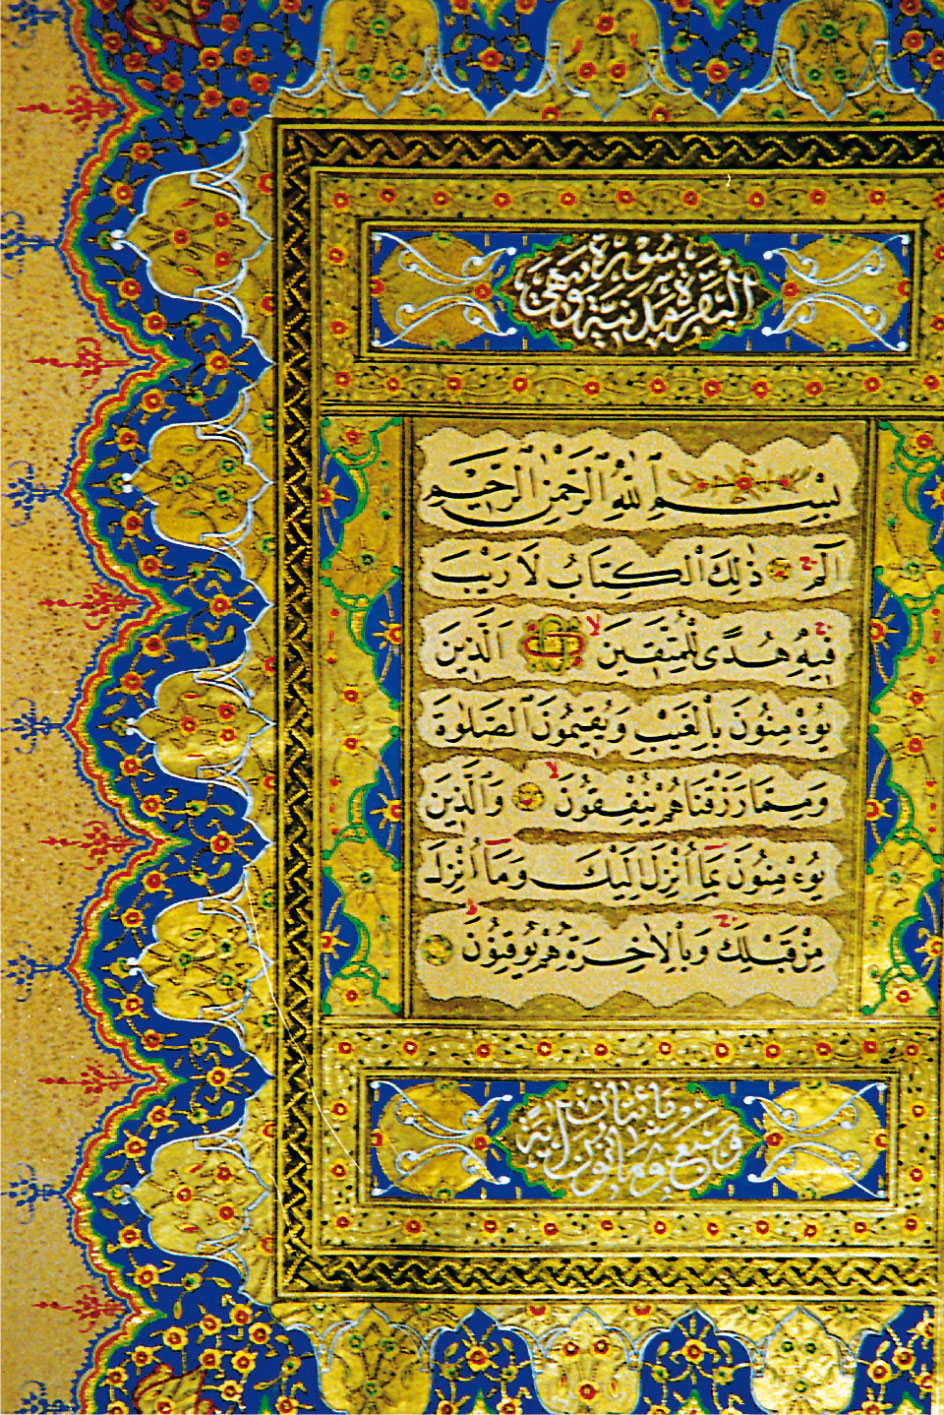 سُورَةُ
الْبَقَرَةِ مَدَنِيَّةٌ وَهِيَ
بِسْمِ ٱللّٰهِ ٱلرَّحْمٰنِ ٱلرَّحِيمِ
الٓمٓ ۚ ذٰلِكَ ٱلْكِتَابُ لَا رَيْبَ
فِيهِ ۚ هُدًى لِلْمُتَّقِينَ ۙ ٱلَّذِينَ
يُؤْمِنُونَ بِٱلْغَيْبِ وَيُقِيمُونَ ٱلصَّلٰوةَ
وَمِمَّا رَزَقْنَاهُمْ يُنْفِقُونَ ۙ وَٱلَّذِينَ
يُؤْمِنُونَ بِمَٓا اُنْزِلَ اِلَيْكَ وَمَٓا اُنْزِلَ
مِنْ قَبْلِكَ ۚ وَبِالْاٰخِرَةِ هُمْ يُوقِنُونَ ۜ
مِائَتَانِ
وَسَبْعٌ وَثَمَانُونَ اٰيَةً